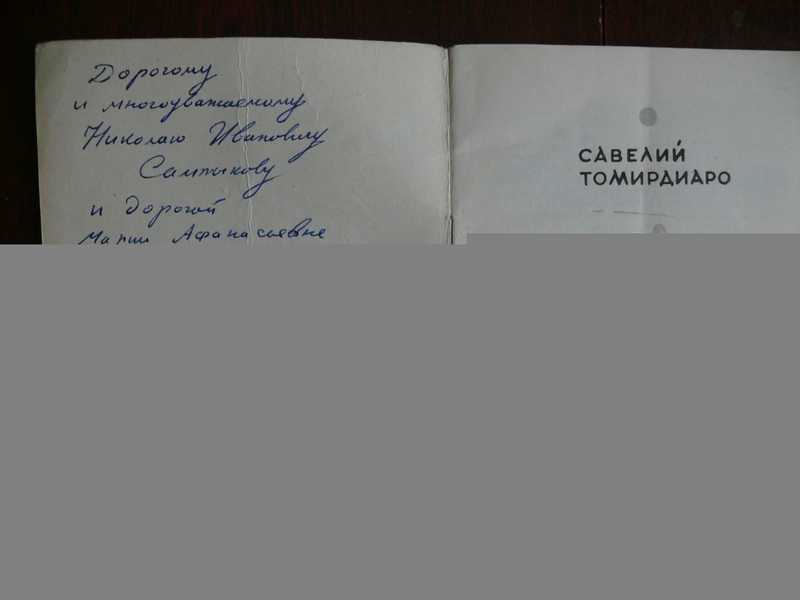 Дорогому
и многоуважаемому
Николаю Ивановичу
Салтыкову
и дорогой
Марии Афанасьевне
САВЕЛИЙ
ТОМИРДИАРО